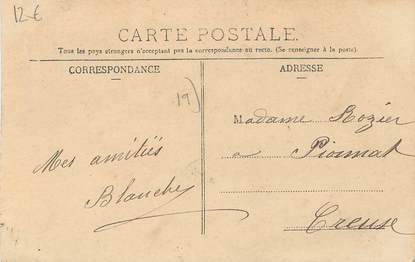 12 €
CARTE POSTALE.
Tous les pays étrangers n'acceptent pas la correspondance au recto. (Se renseigner à la poste).
CORRESPONDANCE
ADRESSE
19)
Mes amitiés
Blanche
Madame Rozier
a Pionnat
Creuse